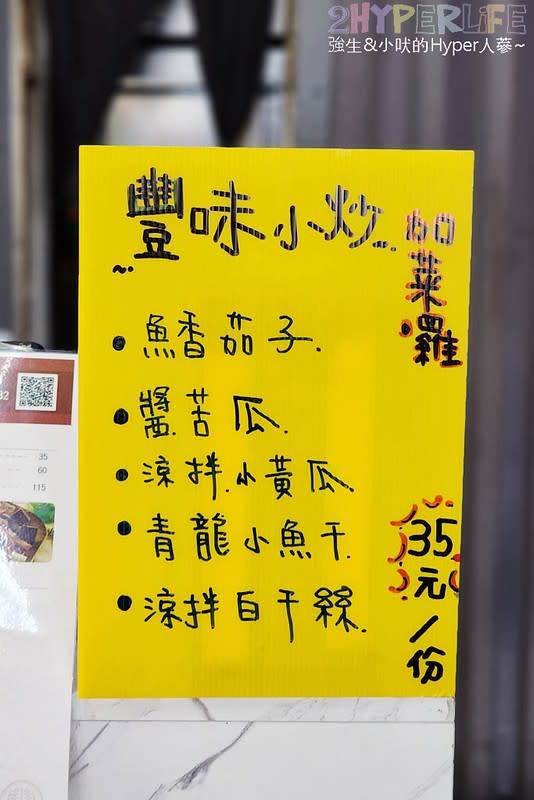 2HYPERLIFE
強生&小吠的Hyper人蔘~
豐味小炒
加菜囉
•魚香茄子.
•醬苦瓜.
•涼拌小黃瓜.
•青龍小魚干.
•涼拌白干絲.
35元/份
35
60
115